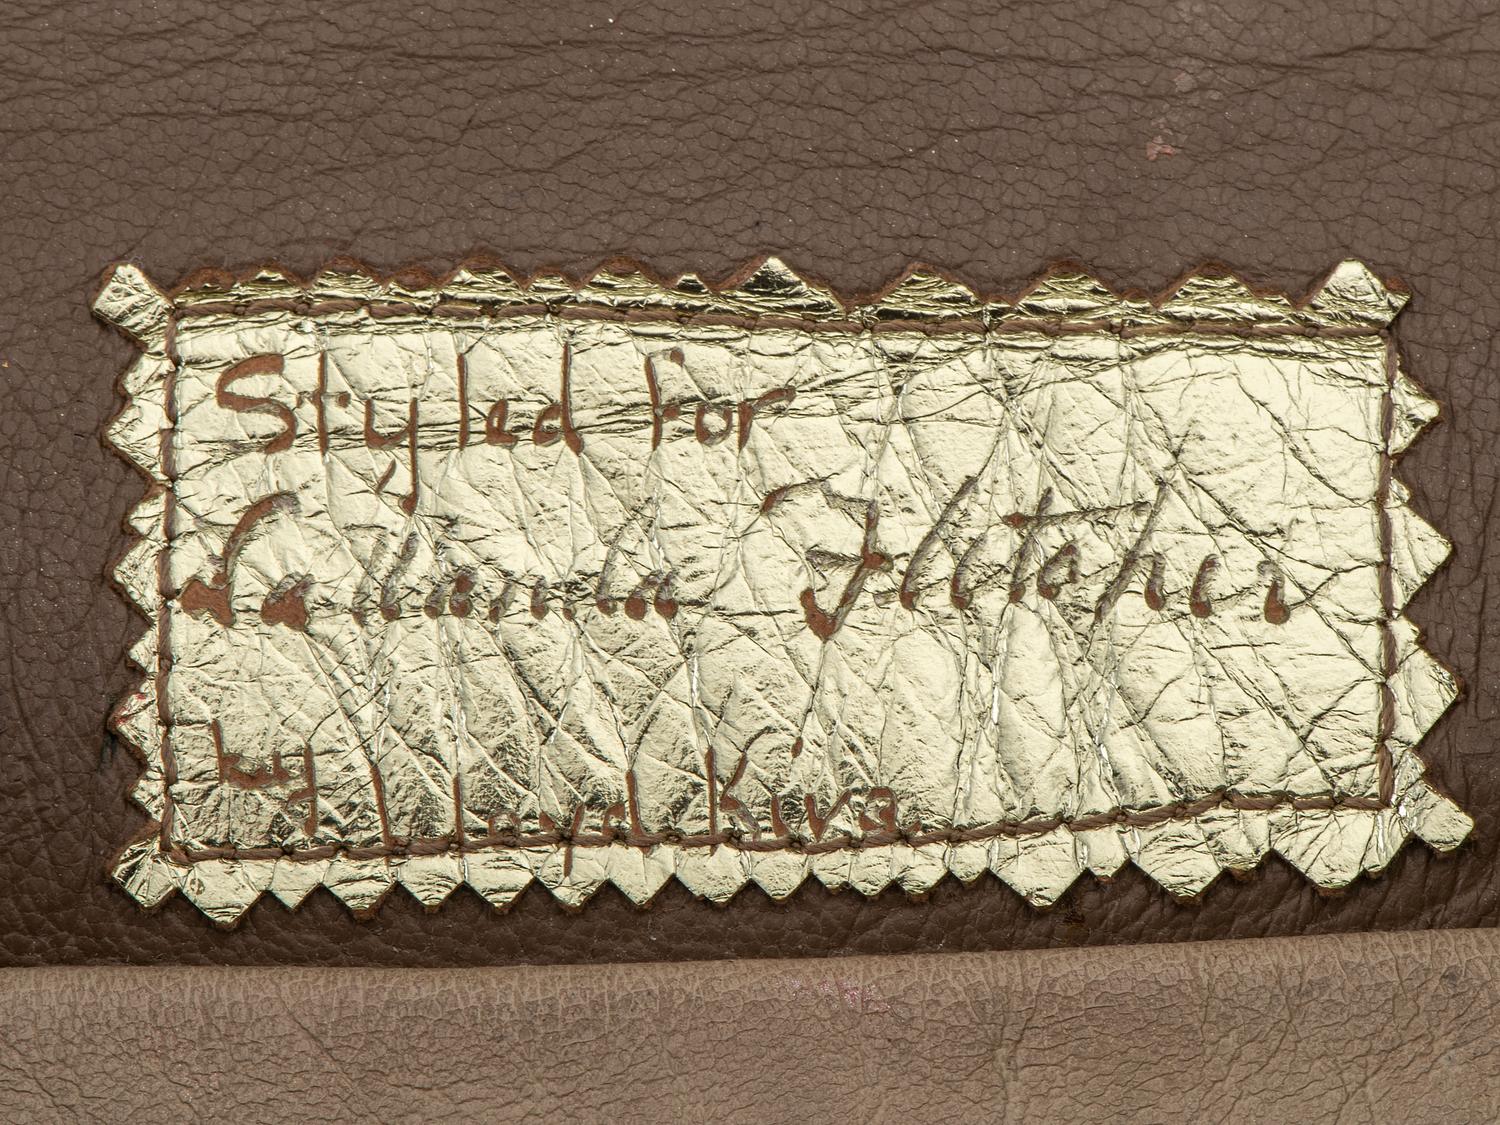 Styled For
Fletcher
by Lloyd Kiva